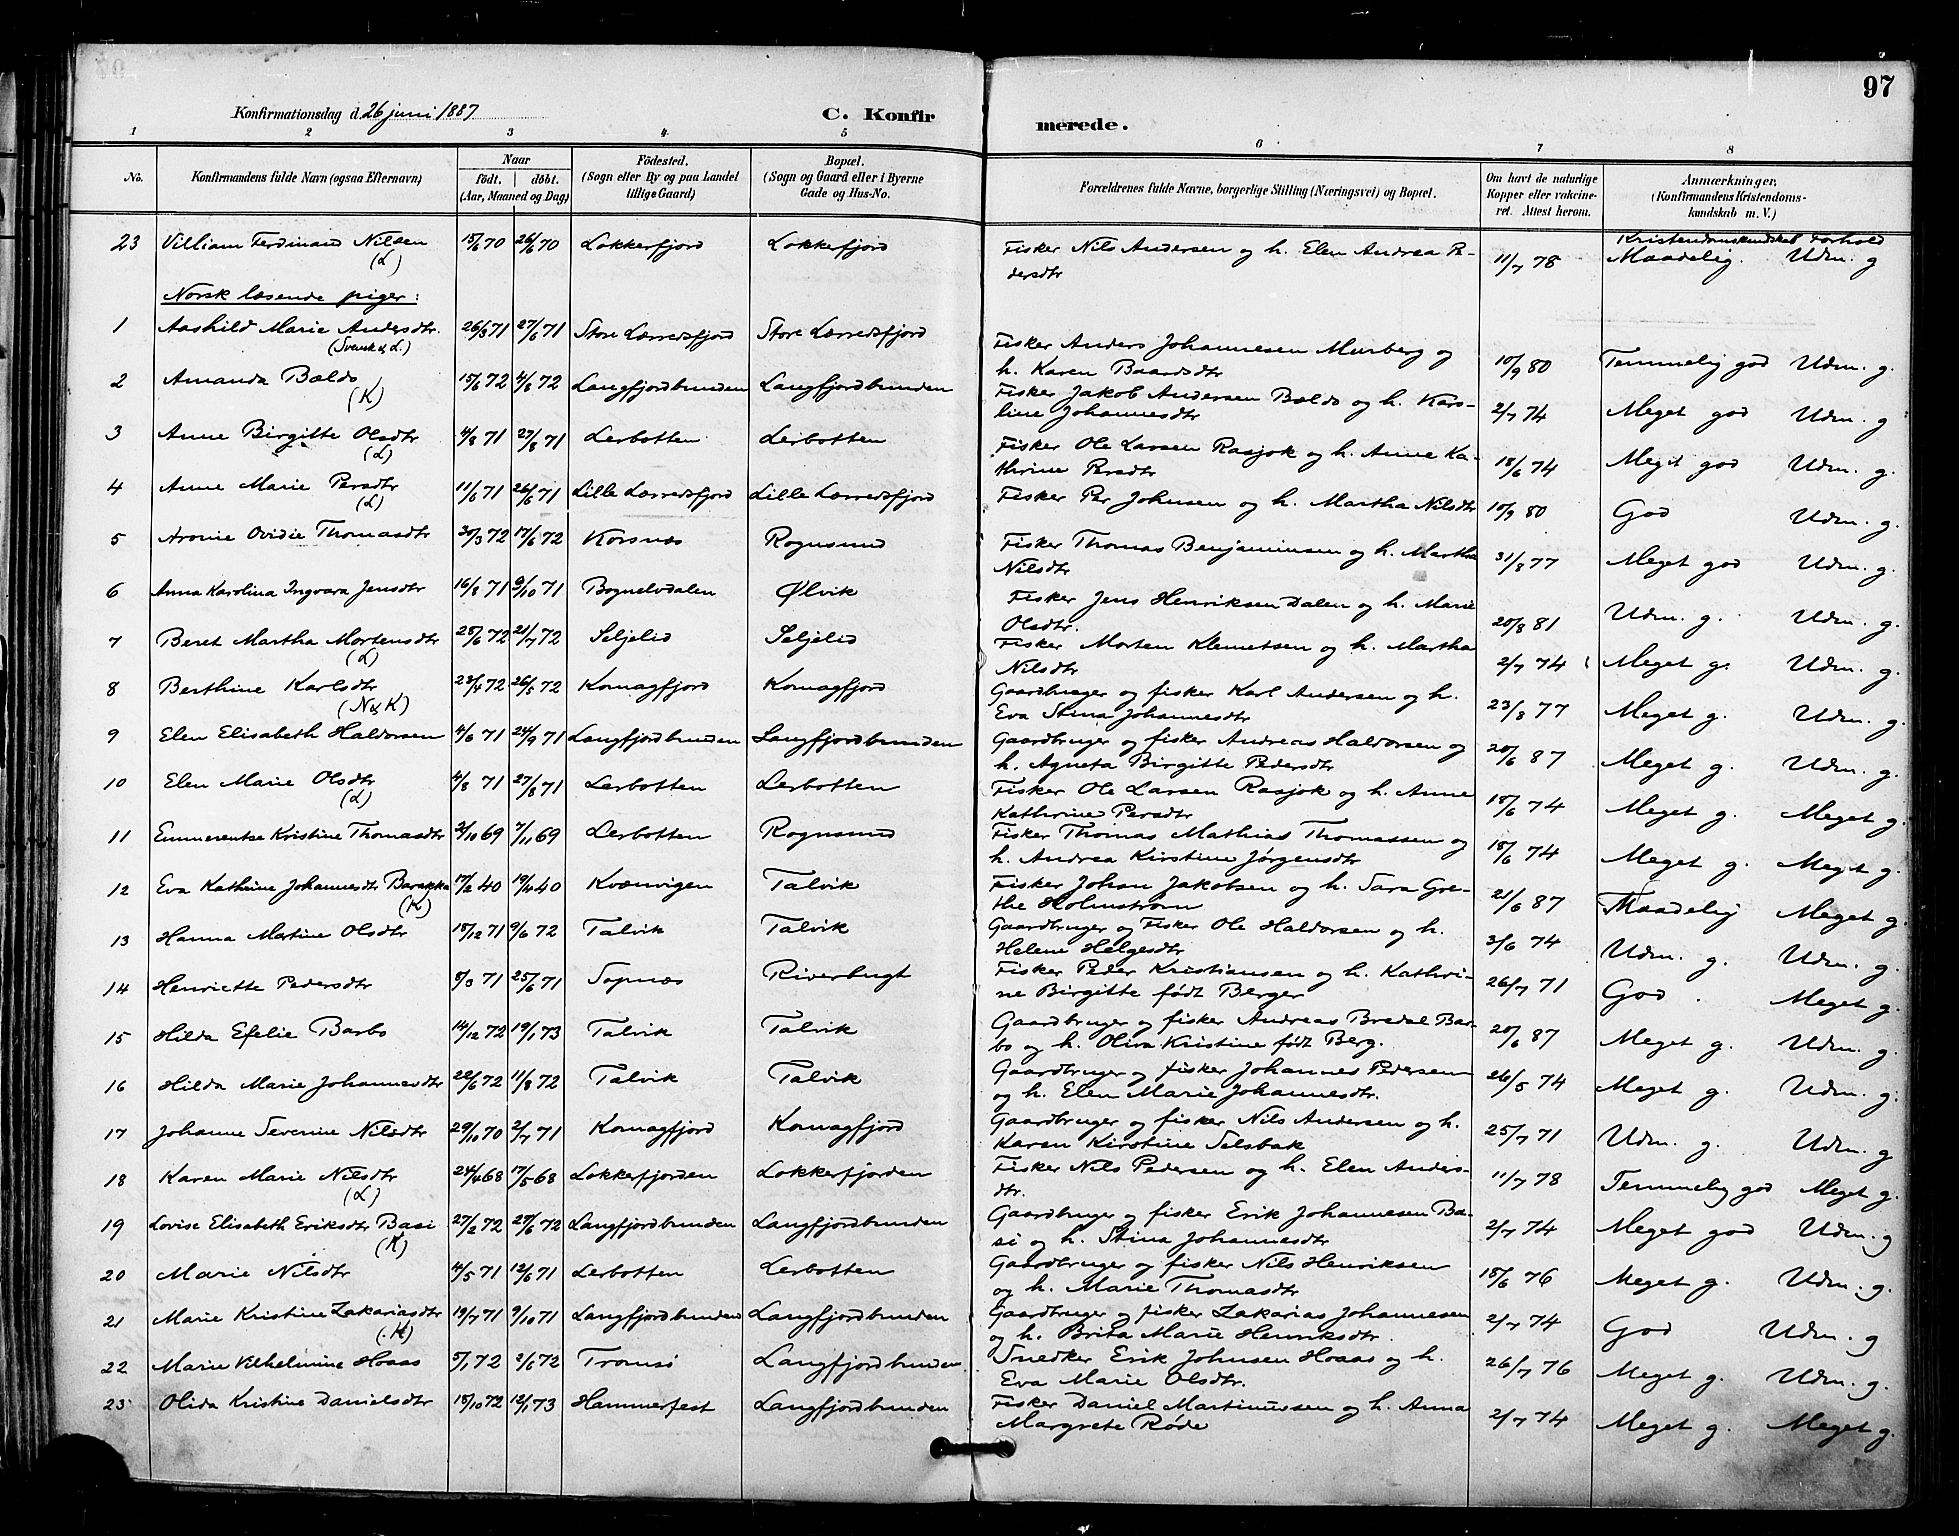 97
Konfirmationsdag d. 26 juni 1887
C. Konfirmerede.
1 2 3 4 5 6 7 8
No. Konfirmandens fulde Navn (ogsaa Efternavn) Naar født. døbt. (Aar, Maaned og Dag) Fødested. (Sogn eller By og paa Landet tillige Gaard) Bopæl. (Sogn og Gaard eller i Byerne Gade og Hus-No. Forældrenes fulde Navne, borgerlige Stilling (Næringsvei) og Bopæl. Om havt de naturlige Kopper eller vakcineret. Attest herom. Anmærkninger, (Konfirmandens Kristendomskundskab m. V.)
Kristendomskundskab Forhold
23 Villiam Ferdinand Nilsen (L) 15/6 70 26/6 70 Lokkerfjord Lokkerfjord Fisker Nils Andersen og h. Elen Andrea Pedersdtr 11/7 78 Maadelig. Udm. g
Norsk læsende piger:
1 Aashild Marie Andersdtr. (Svensk & L.) 26/3 71 27/6 71 Store Lærredsfjord Store Lærredsfjord Fisker Anders Johannesen Murberg og h. Karen Baardsdtr 10/9 80 Temmelig god Udm. g.
2 Amanda Bælds (K) 15/6 72 4/8 72 Langfjordbunden Langfjordbunden Fisker Jakob Andersen Bælds og h. Karoline Johannesdtr 2/7 74 Meget god Udm. g
3 Anne Birgitte Olsdtr (L) 4/8 71 27/8 71 Lerbotten Lerbotten Fisker Ole Larsen Rasjok og h. Anne Kathrine Persdtr 18/6 74 Meget god Udm. g.
4 Anne Marie Persdtr (L) 11/6 71 26/6 71 Lille Lærredsfjord Lille Lærredsfjord Fisker Per Johnsen og h. Martha Nilsdtr 10/9 80 God Udm. g.
5 Aronie Ovidie Thomasdtr 30/3 72 17/6 72 Korsnæs Rognsund Fisker Thomas Benjaminsen og h. Martha Nilsdtr 31/8 77 Meget god Udm. g.
6 Anna Karolina Ingvara Jensdtr 16/8 71 9/10 71 Bognelvdalen Ølvik Fisker Jens Henriksen Dalen og h. Marie Olsdtr. 20/8 81 Udm. g. Udm. g.
7 Beret Martha Mortensdtr (L) 25/6 72 21/7 72 Seljelid Seljelid Fisker Morten Klemetsen og h. Martha Nilsdtr 2/7 74 Meget g. Udm. g.
8 Berthine Karlsdtr (N & K) 23/4 72 26/5 72 Komagfjord Komagfjord Gaardbruger og fisker Karl Andersen og h. Eva Stina Johannesdtr 23/8 77 Meget g. Udm. g.
9 Elen Elisabeth Haldorsen 4/6 71 24/9 71 Langfjordbunden Langfjordbunden Gaardbruger og fisker Andreas Haldorsen og h. Agneta Birgitte Pedersdtr 20/6 87 Meget g. Udm. g.
10 Elen Marie Olsdtr (L) 4/8 71 27/8 71 Lerbotten Lerbotten Fisker Ole Larsen Rasjok og h. Anne Kathrine Persdtr 18/6 74 Meget g. Meget g.
11 Emmerentse Kristine Thomasdtr 2/10 69 7/11 69 Lerbotten Rognsund Fisker Thomas Mathias Thomassen og h. Andrea Kirstine Jørgensdtr 18/6 74 Meget g. Meget g.
12 Eva Kathrine Johannesdtr Barakka (K) 17/2 40 19/4 40 Kvænvigen Talvik Fisker Johan Jakobsen og h. Sara Grethe Holmstrøm 21/6 87 Maadelig Meget g.
13 Hanna Martine Olsdtr 18/12 71 9/6 72 Talvik Talvik Gaardbruger og Fisker Ole Haldorsen og h. Helene Helgesdtr 3/6 74 Udm. g. Udm. g.
14 Henriette Pedersdtr 8/3 71 25/6 71 Sopnæs Riverbugt Fisker Peder Kristiansen og h. Kathrine Birgitte født Berger 26/7 71 God. Meget g.
15 Hilda Efelie Barbo 14/12 72 19/1 73 Talvik Talvik Gaardbruger og fisker Andreas Bredal Barbo og h. Oliva Kristine født Berg. 20/6 87 Meget g. Udm. g.
16 Hilda Marie Johannesdtr 22/6 72 11/8 72 Talvik Talvik Gaardbruger og fisker Johannes Pedersen og h. Elen Marie Johannesdtr. 26/5 74 Meget g. Udm. g.
17 Johanne Severine Nilsdtr 29/10 70 2/7 71 Komagfjord Komagfjord Gaardbruger og fisker Nils Andersen og h. Karen Kirstine Selsbak 25/7 71 Udm. g. Udm. g
18 Karen Marie Nilsdtr (L) 24/4 68 17/5 68 Lokkerfjorden Lokkerfjorden Fisker Nils Pedersen og h. Elen Andersdtr. 11/7 78 Temmelig god Meget g.
19 Lovise Elisabeth Eriksdtr Basi (K) 27/2 72 27/6 72 Langfjordbunden Langfjordbunden Gaardbruger og fisker Erik Johannesen Basi og h. Stina Johannesdtr 2/7 74 Meget god Udm. g
20 Marie Nilsdtr 4/5 71 12/6 71 Lerbotten Lerbotten Gaardbruger og fisker Nils Henriksen og h. Marie Thomasdtr 18/6 76 Meget g. Udm. g.
21 Marie Kristine Zakariasdtr (K) 19/7 71 9/10 71 Langfjordbunden Langfjordbunden Gaardbruger og fisker Zakarias Johannesen og h. Brita Marie Henriksdtr. 2/7 74 God Udm. g
22 Marie Vilhelmine Hoaas 5/1 72 2/6 72 Tromsø Langfjordbunden Snedker Erik Johnsen Hoaas og h. Eva Marie Olsdtr. 26/7 76 Meget g. Udm. g.
23 Olida Kristine Danielsdtr 18/10 72 12/1 73 Hammerfest Langfjordbunden Fisker Daniel Martinussen og h. Anna Margrete Røde 2/7 74 Meget g. Meget g.